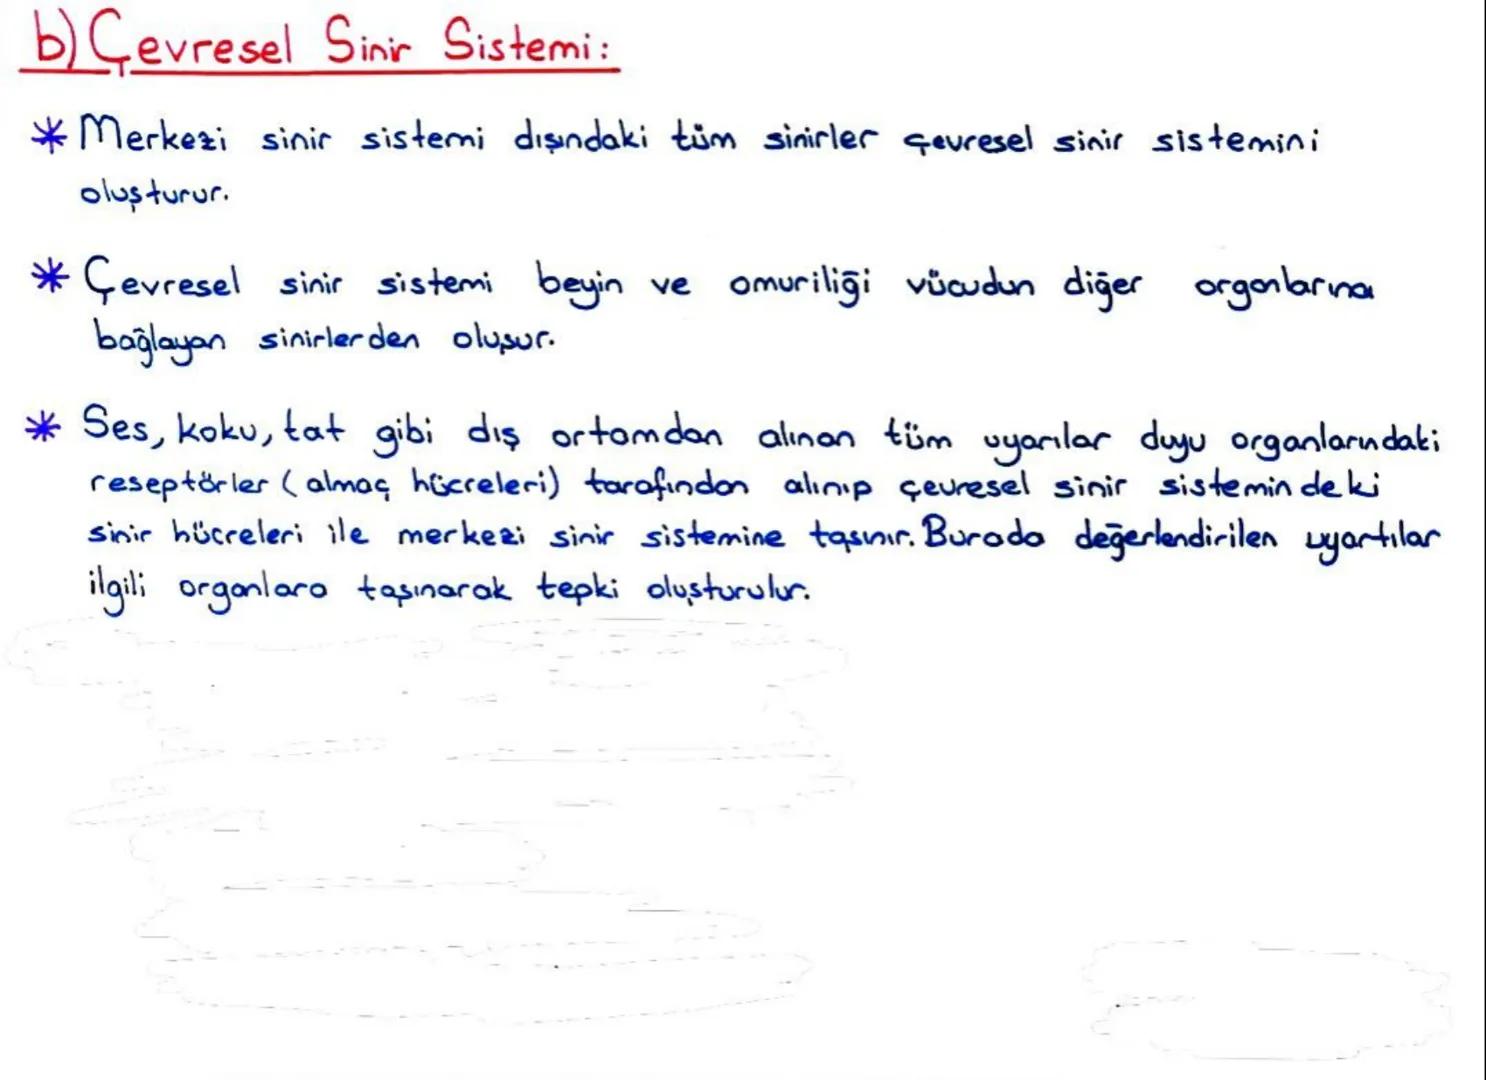 b) Çevresel Sinir Sistemi:
* Merkezi sinir sistemi dışındaki tüm sinirler çevresel sinir sistemini
oluşturur.
* Çevresel sinir sistemi beyin ve omuriliği vücudun diğer organlarına
bağlayan sinirlerden oluşur.
* Ses, koku, tat gibi dış ortamdan alınan tüm uyarılar duyu organlarındaki
reseptörler (almaç hücreleri) tarafından alınıp çevresel sinir sistemindeki
sinir hücreleri ile merkezi sinir sistemine taşınır. Burada değerlendirilen uyartılar
ilgili organlara taşınarak tepki oluşturulur.